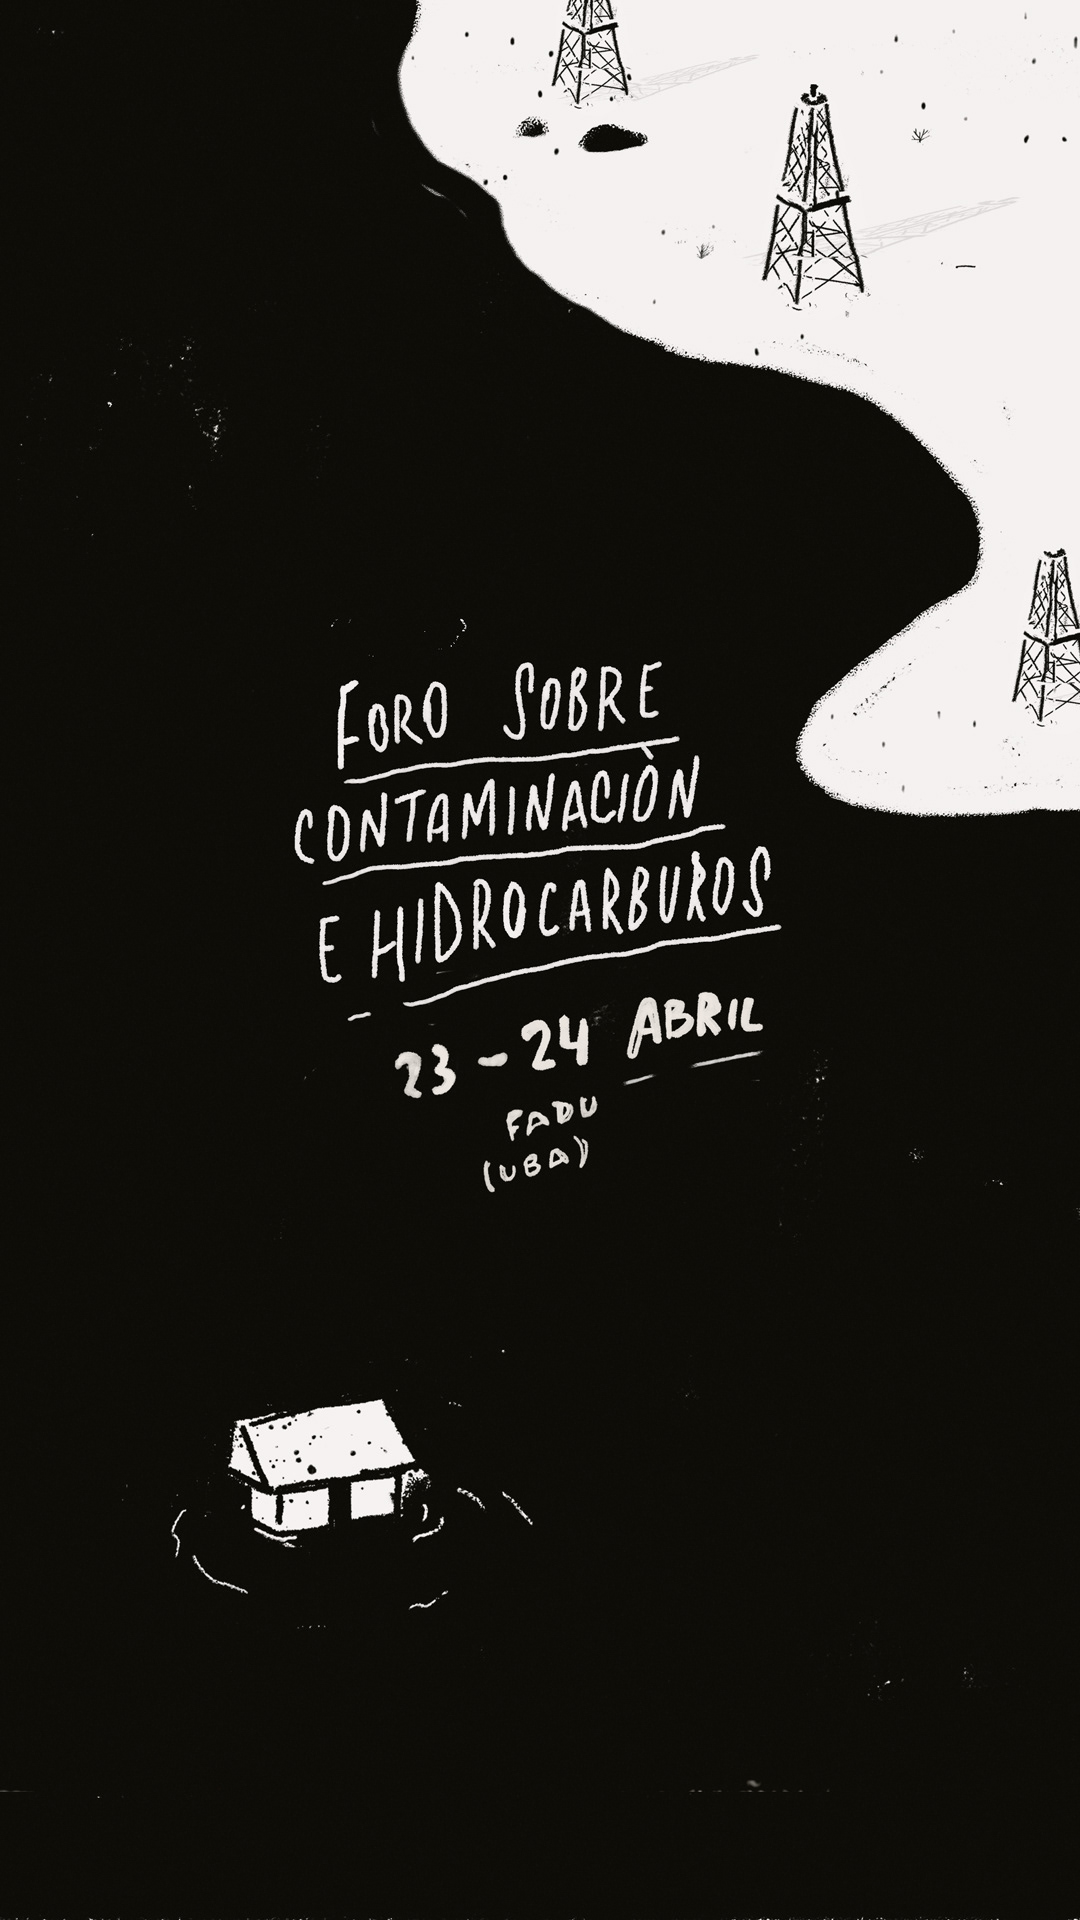 FORO SOBRE
CONTAMINACIÒN
E HIDROCARBUROS
23 - 24 ABRIL
FADU
(UBA)